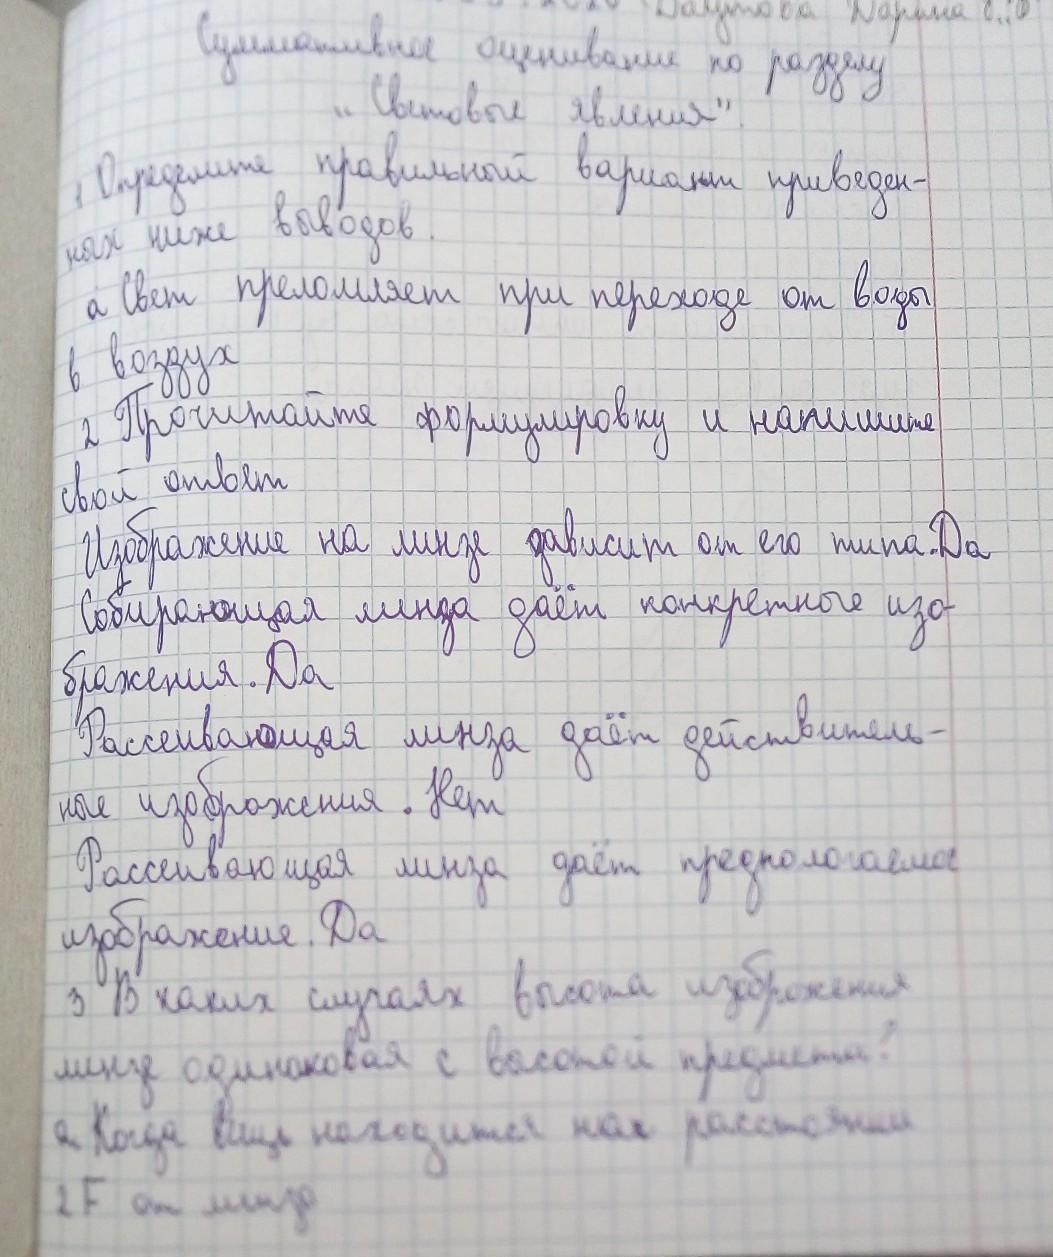 Даутова Дарина
Суммативное оценивание по разделу
"Световые явления".
1 Определите правильный вариант приведен-
ных ниже выводов.
а Свет преломляет при переходе от воды
в воздух
2 Прочитайте формулировку и напишите
свой ответ
Изображение на линзе зависит от его типа. Да
Собирающая линза даёт конкретные изо-
бражения. Да
Рассеивающая линза даёт действитель-
ные изображения. Нет
Рассеивающая линза даёт предпологаемое
изображение. Да
3 В каких случаях высота изображения
линзе одинаковая с высотой предмета?
а Когда находится на расстоянии
2F от линзы